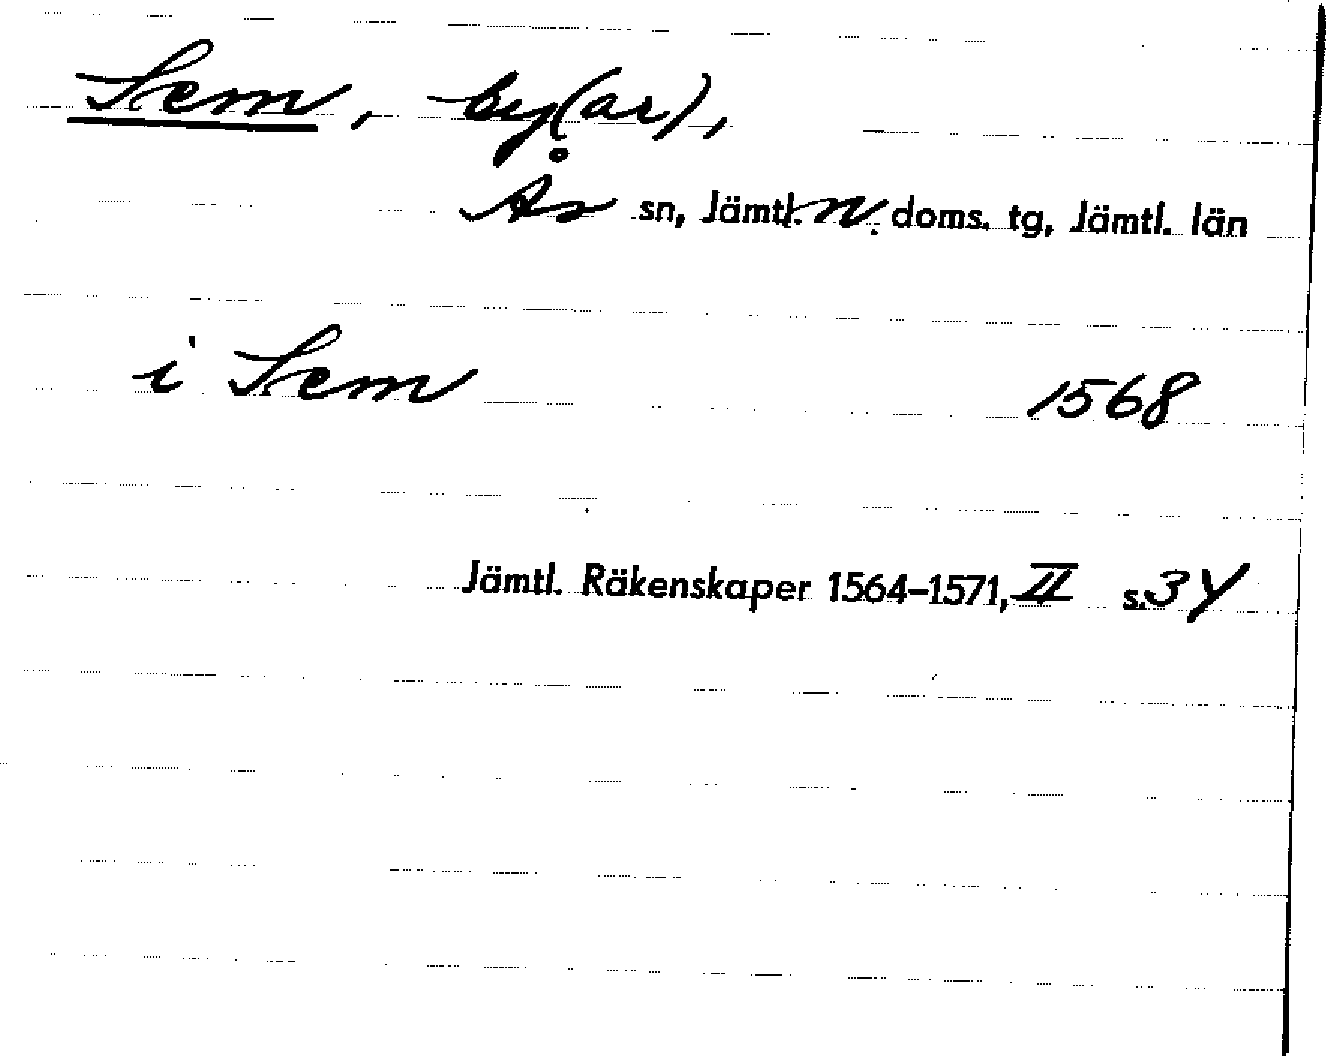 Sem, by(ar),
Ås sn, Jämtl. n. doms. tg, Jämtl. län
i Sem 1568
Jämtl. Räkenskaper 1564–1571, II s.